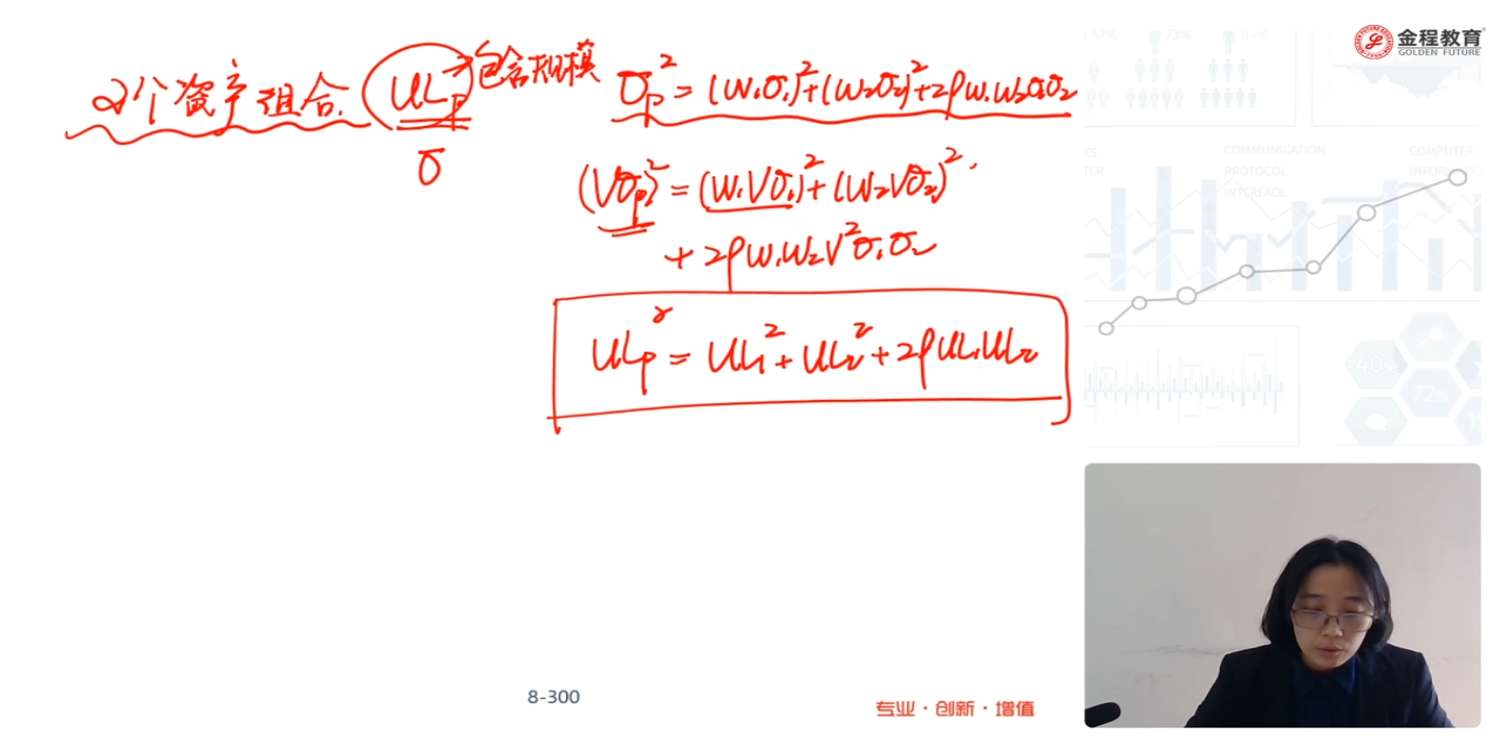 金程教育
GOLDEN FUTURE
2个资产组合. ULp → 包含规模
σ
σp² = (w₁σ₁)² + (w₂σ₂)² + 2ρw₁w₂σ₁σ₂
(Vσp)² = (w₁Vσ₁)² + (w₂Vσ₂)²
+ 2ρw₁w₂V²σ₁σ₂
ULp² = UL₁² + UL₂² + 2ρUL₁UL₂
COMMUNICATION
PROTOCOL
INTERFACE
COMPUTER
8-300
专业·创新·增值